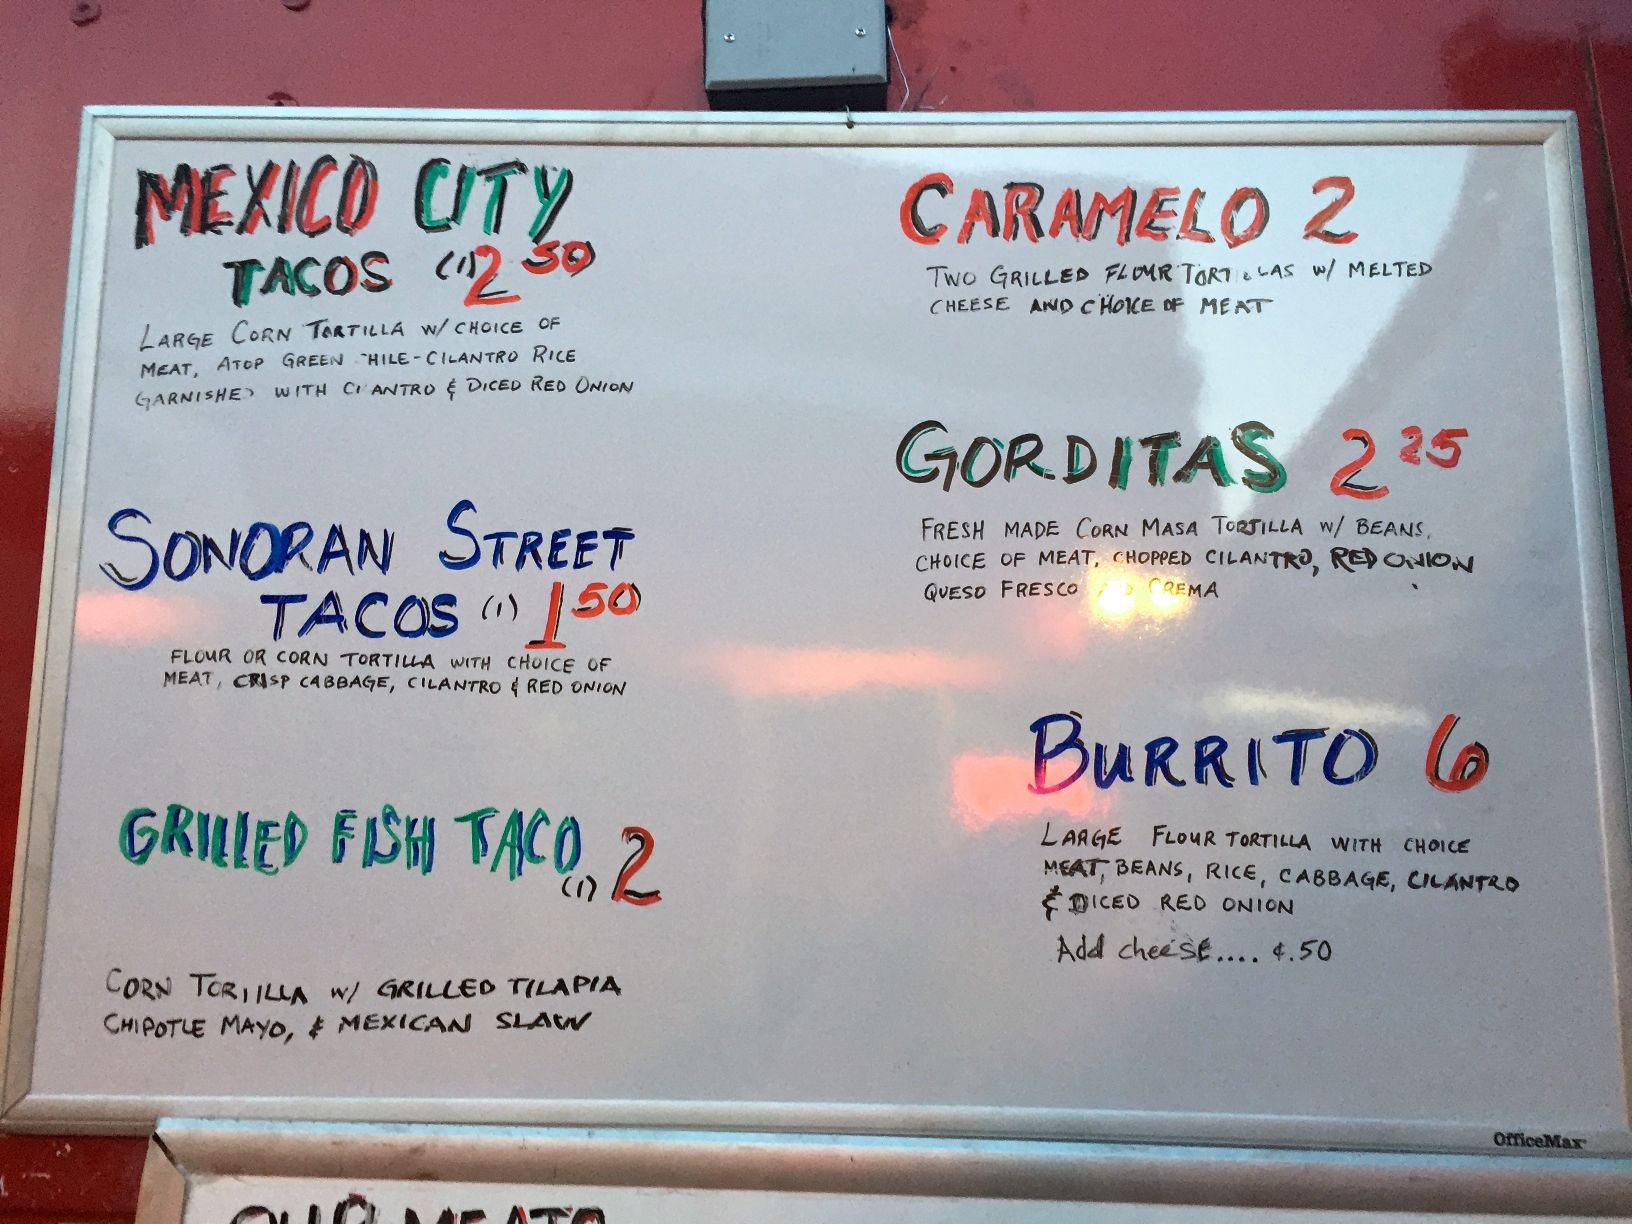 MEXICO CITY
TACOS (1) 2 50
LARGE CORN TORTILLA W/ CHOICE OF
MEAT, ATOP GREEN HILE-CILANTRO RICE
GARNISHED WITH CILANTRO & DICED RED ONION
SONORAN STREET
TACOS (1) 1 50
FLOUR OR CORN TORTILLA WITH CHOICE OF
MEAT, CRISP CABBAGE, CILANTRO & RED ONION
GRILLED FISH TACO
(1) 2
CORN TORTILLA W/ GRILLED TILAPIA
CHIPOTLE MAYO, & MEXICAN SLAW
CARAMELO 2
TWO GRILLED FLOUR TORTILLAS W/ MELTED
CHEESE AND CHOICE OF MEAT
GORDITAS 2 25
FRESH MADE CORN MASA TORTILLA W/ BEANS,
CHOICE OF MEAT, CHOPPED CILANTRO, RED ONION
QUESO FRESCO CREMA
BURRITO 6
LARGE FLOUR TORTILLA WITH CHOICE
MEAT, BEANS, RICE, CABBAGE, CILANTRO
& DICED RED ONION
Add cheese.... ¢.50
OfficeMax
OUR MEATS